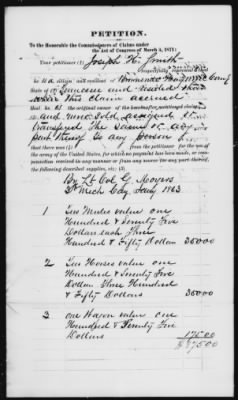 PETITION.
To the Honorable the Commissioners of Claims under
the Act of Congress of March 3, 1871:
Joseph H. Smith
Respectfully
is a citizen and resident of
of Tennessee and resided there
when this claim accrued
that he is the original owner of the hereinafter petitioned claims
and never sold, assigned or
transferred the same or any
part thereof to any person
that there was (3) from the petitioner for the use of the
army of the United States, for which no payment has been made, or
received in any manner or from any source for any part thereof,
the following described supplies, viz: (5)
By Lt Col G. Moyers
3d Mich Cdy Jany 1863
1 Two Mules value one
Hundred & Seventy Five
Dollars each Three
Hundred & Fifty Dollars 350 00
2 Two Horses value one
Hundred & Seventy Five
Dollars Three Hundred
& Fifty Dollars 350 00
3 One Wagon value one
Hundred & Seventy Five
Dollars 175 00
$ 875 00